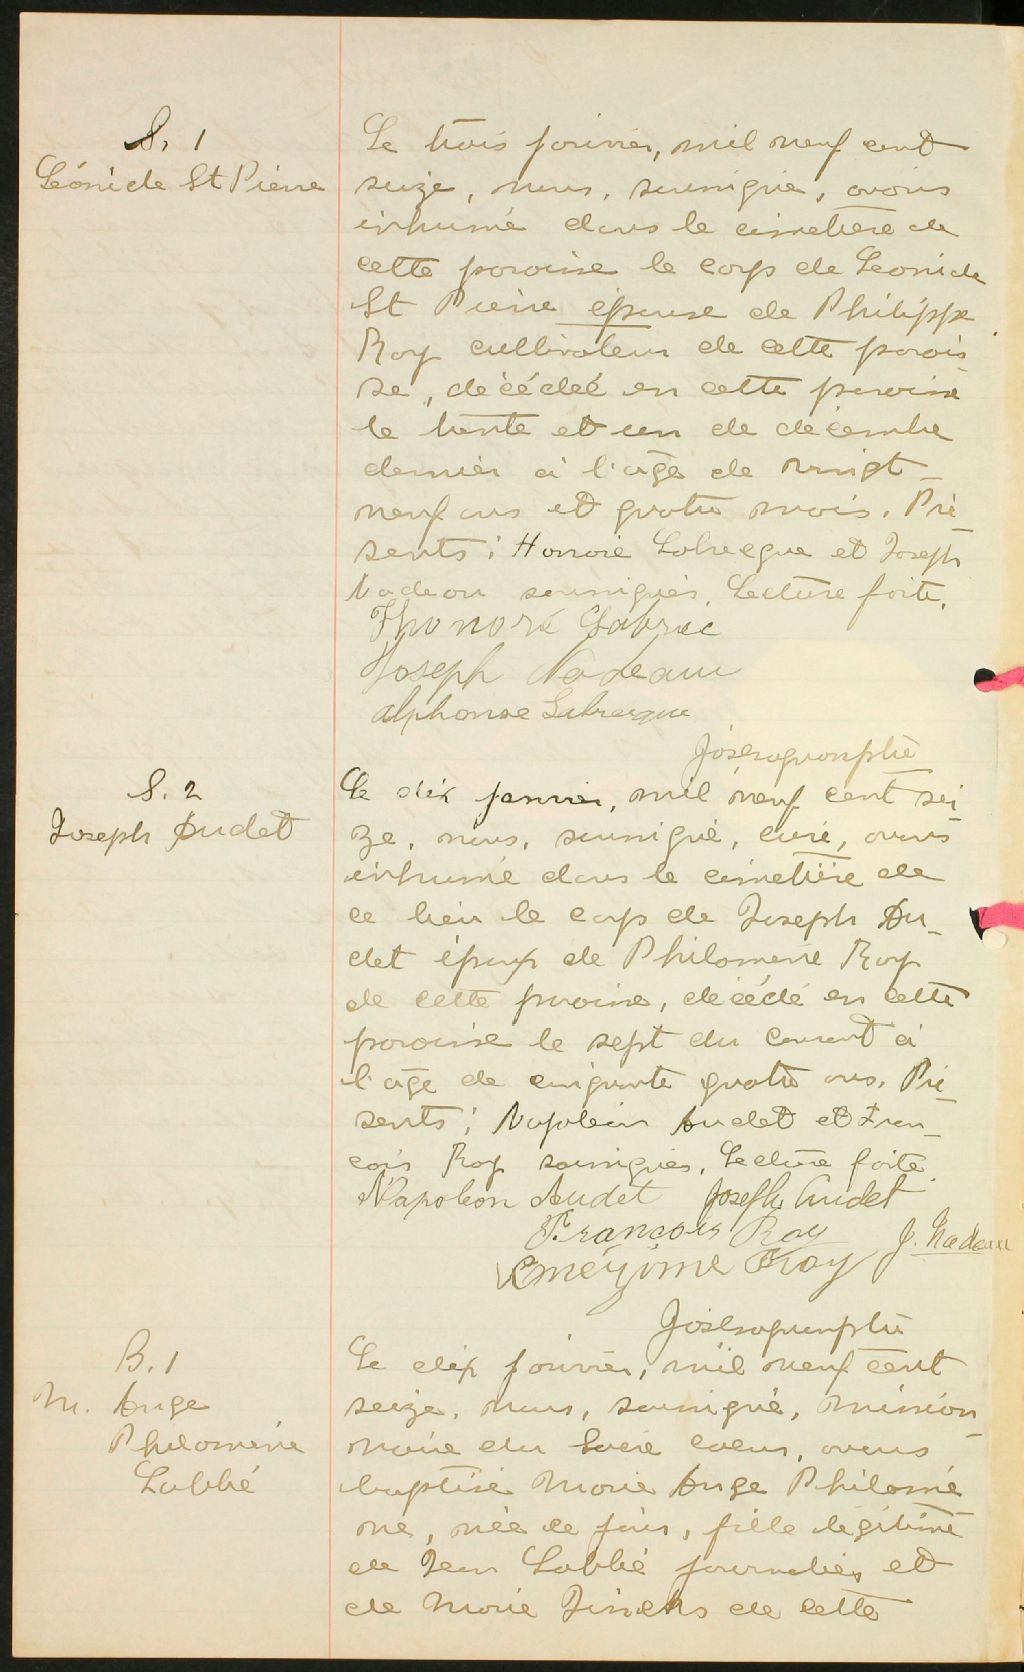 S. 1
Léonide St Pierre
Le trois janvier, mil neuf cent
seize, nous, soussigné, avons
inhumé dans le cimetière de
cette paroisse le corps de Léonide
St Pierre épouse de Philippe
Roy cultivateur de cette parois
se, décédée en cette paroisse
le trente et un de décembre
dernier à l'âge de vingt-
neuf ans et quatre mois. Pré-
sents: Honoré Labrecque et Joseph
Nadeau soussignés. Lecture faite.
Honoré Labrec
Joseph Nadeau
Alphonse Labrecque
ptre
S. 2
Joseph Audet
Le dix janvier, mil neuf cent sei
ze, nous, soussigné, curé, avons
inhumé dans le cimetière de
ce lieu le corps de Joseph Au-
det époux de Philomène Roy
de cette paroisse, décédé en cette
paroisse le sept du courant à
l'âge de cinquante quatre ans. Pré-
sents: Napoléon Audet et Fran-
çois Roy soussignés. Lecture faite.
Napoléon Audet Joseph Audet
Francois Roy J. Nadeau
Roy
ptre
B. 1
M. Ange
Philomène
Labbé
Le dix janvier, mil neuf cent
seize, nous, soussigné, mission-
naire du Sacré Coeur, avons
baptisé Marie Ange Philomè
ne, née ce jour, fille légitime
de Jean Labbé journalier et
de Marie de cette